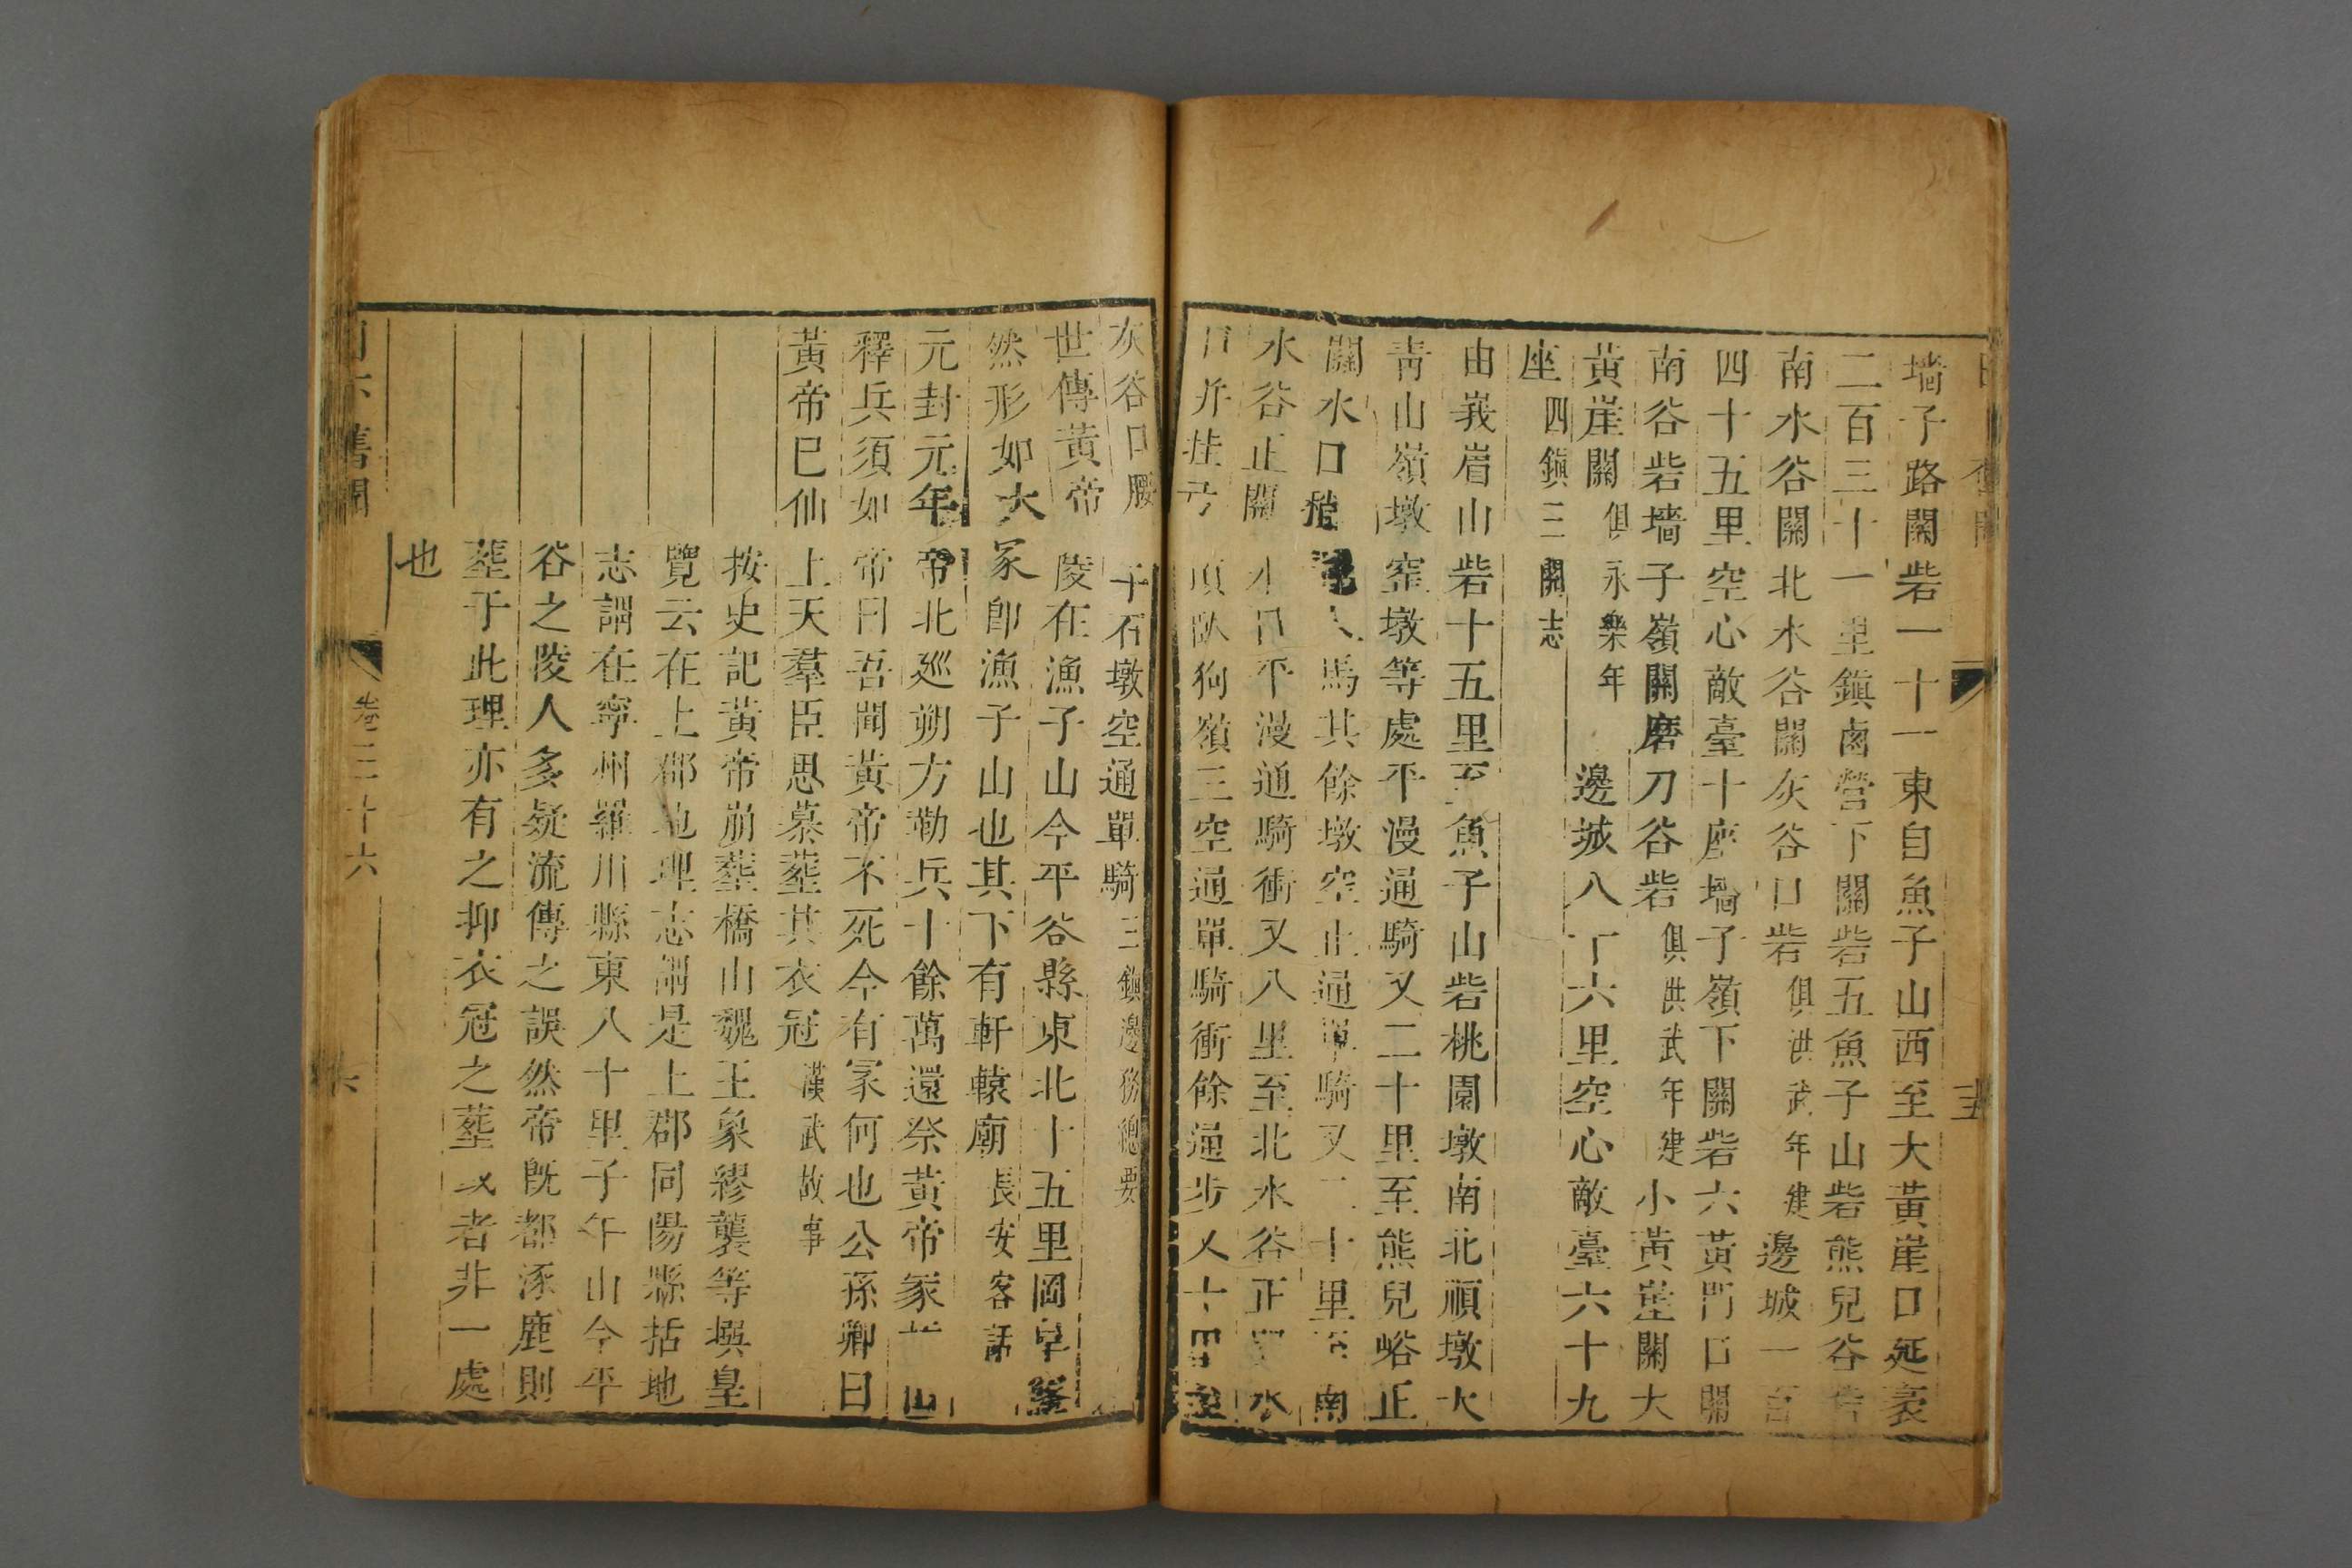 墻子路關砦一十一東自魚子山西至大黃崖口延袤
二百三十一里鎭鹵營下關砦五魚子山砦熊兒谷砦
南水谷關北水谷關灰谷口砦俱洪武年建邊城一百
四十五里空心敵臺十座墻子嶺下關砦六黃門口關
南谷砦墻子嶺關磨刀谷砦俱洪武年建小黃崖關大
黃崖關俱永樂年邊城八十六里空心敵臺六十九
座四鎭三關志
由峩眉山砦十五里至魚子山砦桃園墩南北頂墩火
靑山嶺墩窄墩等處平漫通騎又二十里至熊兒峪正
關水口人馬其餘墩空止通單騎又二十里至南
水谷正關水口平漫通騎衝又八里至北水谷正關水
口幷頂臥狗嶺三空通單騎衝餘通步又十里
灰谷口腰子石墩空通單騎三鎭邊務總要
世傳黃帝陵在漁子山今平谷縣東北十五里岡阜
然形如大冢卽漁子山也其下有軒轅廟長安客話
元封元年帝北廵朔方勒兵十餘萬還祭黃帝冢山
釋兵須如帝曰吾聞黃帝不死今有冢何也公孫卿曰
黃帝已仙上天羣臣思慕葬其衣冠漢武故事
按史記黃帝崩葬橋山魏王象繆襲等撰皇
覽云在上郡地理志謂是上郡同陽縣括地
志謂在寧州羅川縣東八十里子午山今平
谷之陵人多疑流傳之誤然帝旣都涿鹿則
葬于此理亦有之抑衣冠之葬或者非一處
也
舊聞
卷三十六